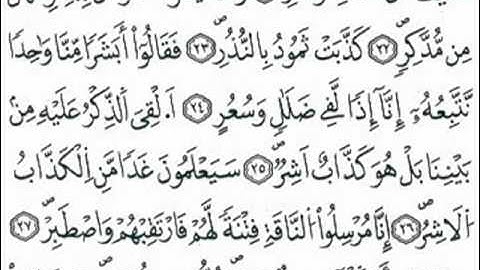 مِن مُّدَّكِرٍ ٢٢ كَذَّبَتْ ثَمُودُ بِالنُّذُرِ ٢٣ فَقَالُوٓاْ أَبَشَرًا مِّنَّا وَٰحِدًا
نَّتَّبِعُهُۥٓ إِنَّآ إِذًا لَّفِے ضَلَٰلٍ وَسُعُرٍ ٢٤ أَ.لْقِيَ الذِّكْرُ عَلَيْهِ مِنۢ
بَيْنِنَا بَلْ هُوَ كَذَّابٌ أَشِرٌ ٢٥ سَيَعْلَمُونَ غَدًا مَّنِ الْكَذَّابُ
الْأَشِرُ ٢٦ إِنَّا مُرْسِلُواْ النَّاقَةِ فِتْنَةً لَّهُمْ فَارْتَقِبْهُمْ وَاصْطَبِرْ ٢٧